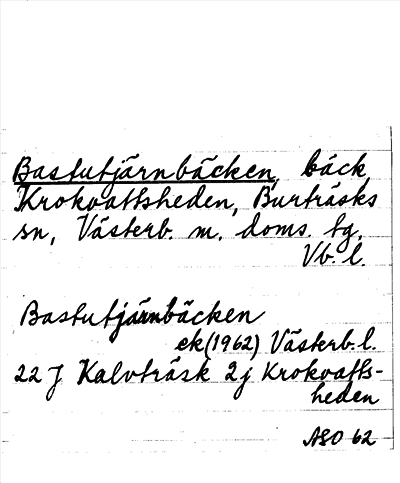 Bastutjärnbäcken, bäck
Krokvattsheden, Burträsks
sn, Västerb. m. doms. tg,
Vb. l.
Bastutjärnbäcken
ek(1962) Västerb. l.
22 J Kalvträsk 2j Krokvatts-
heden
ASO 62